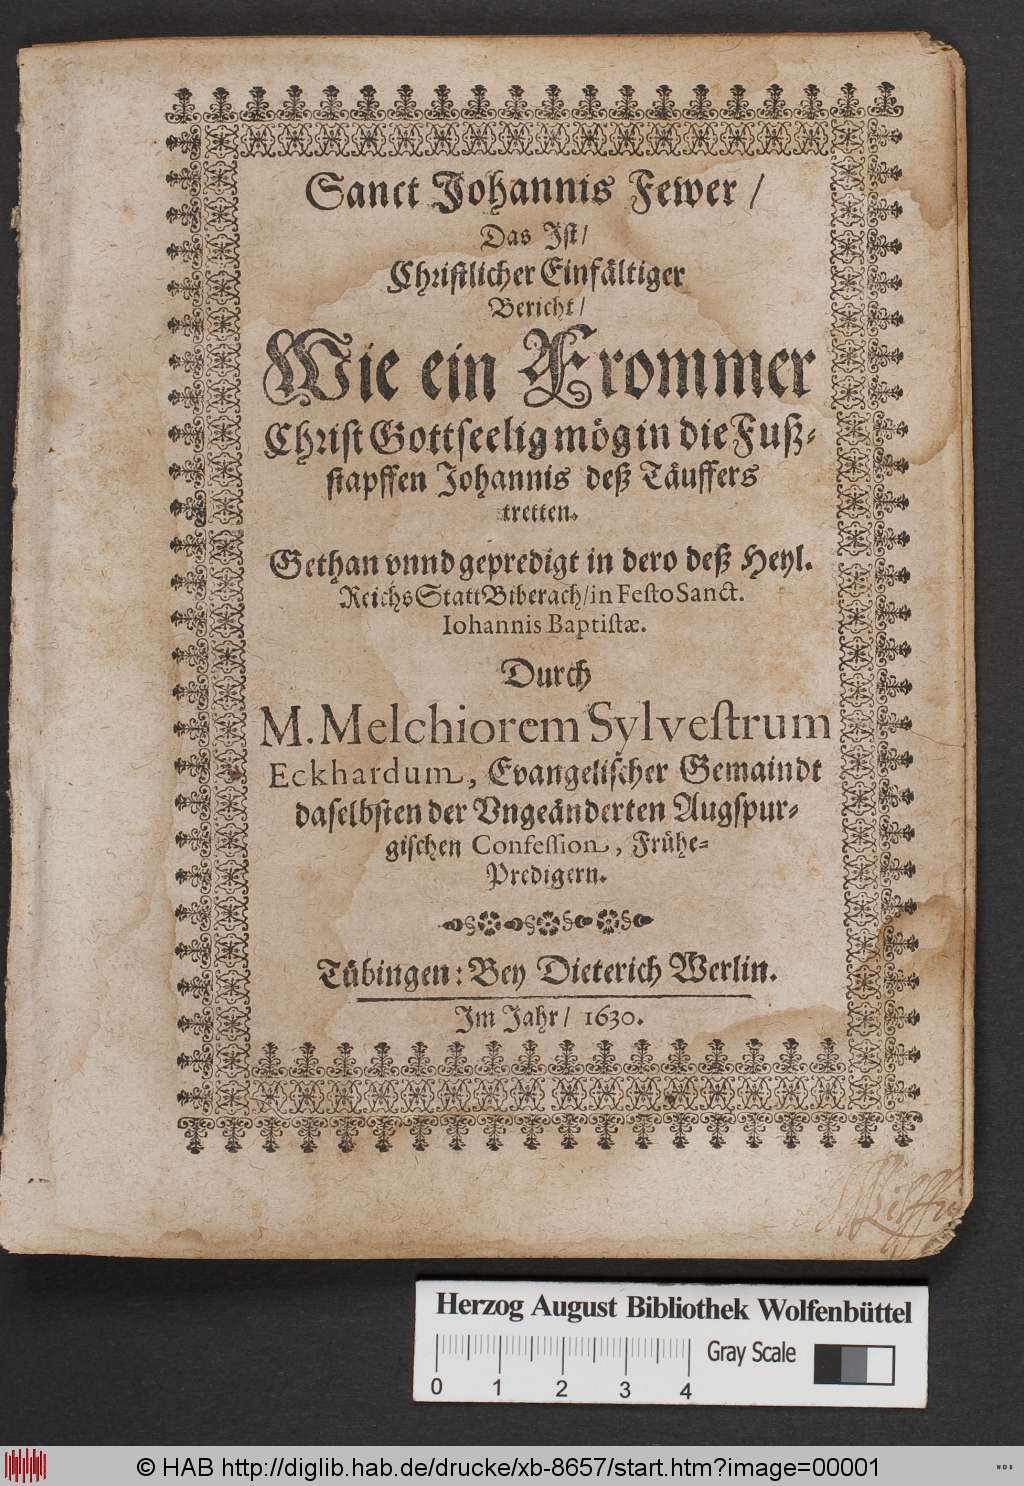 Sanct Johannis Fewer /
Das Ist /
Christlicher Einfältiger
Bericht /
Wie ein Frommer
Christ Gottseelig mög in die Fuß-
stapffen Johannis deß Täuffers
tretten.
Gethan vnnd gepredigt in dero deß Heyl.
Reichs Statt Biberach / in Festo Sanct.
Iohannis Baptistæ.
Durch
M. Melchiorem Sylvestrum
Eckhardum, Evangelischer Gemaindt
daselbsten der Vngeänderten Augspur-
gischen Confession, Frühe-
Predigern.
Tübingen: Bey Dieterich Werlin.
Im Jahr / 1630.
Herzog August Bibliothek Wolfenbüttel
0 1 2 3 4 Gray Scale
© HAB http://diglib.hab.de/drucke/xb-8657/start.htm?image=00001
WDB